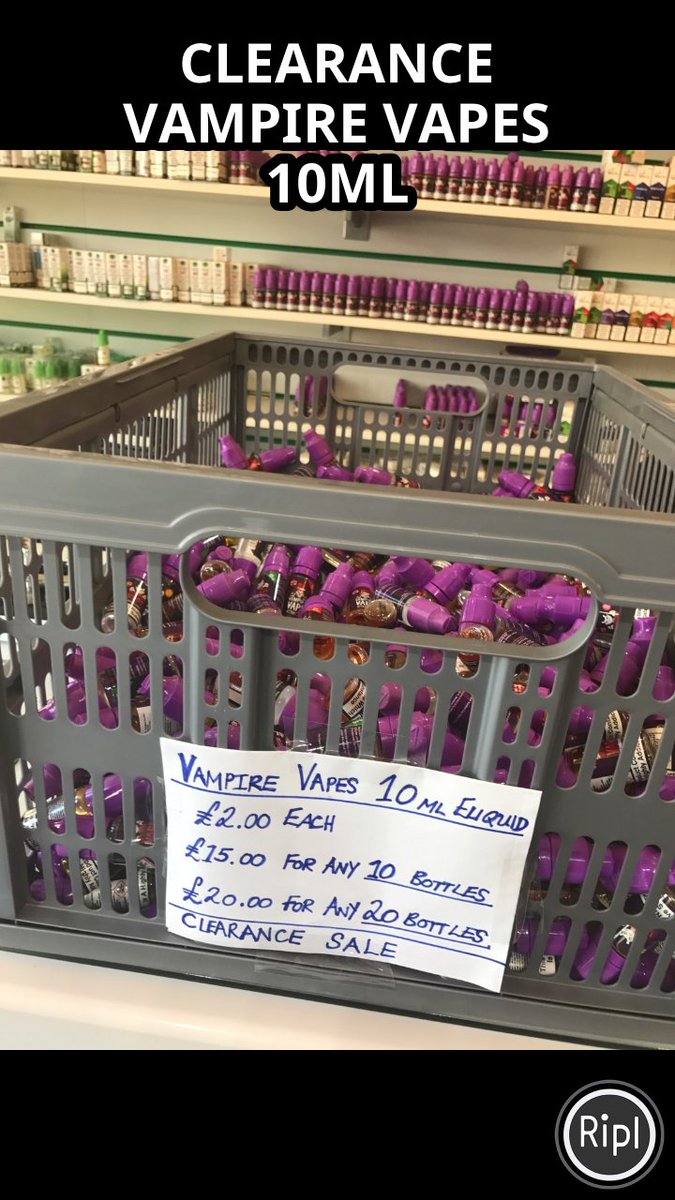 CLEARANCE
VAMPIRE VAPES
10ML
VAMPIRE VAPES 10ML ELIQUID
£2.00 EACH
£15.00 FOR ANY 10 BOTTLES
£20.00 FOR ANY 20 BOTTLES.
CLEARANCE SALE
Ripl